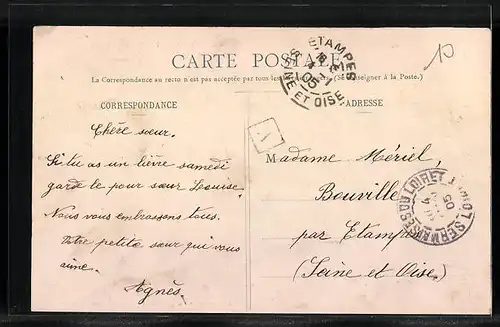 CARTE POSTALE
La Correspondance au recto n'est pas acceptée par tous les (Se renseigner à la Poste.)
CORRESPONDANCE
ADRESSE
ETAMPES
SEINE ET OISE
10
A
Chère sœur.
Si tu as un lièvre samedi
garde le pour sœur Louise.
Nous vous embrassons tous.
Votre petite sœur qui vous
aime.
Agnès.
Madame Mériel,
Bouville
par Etampes
(Seine et Oise.)
LOIRET
05